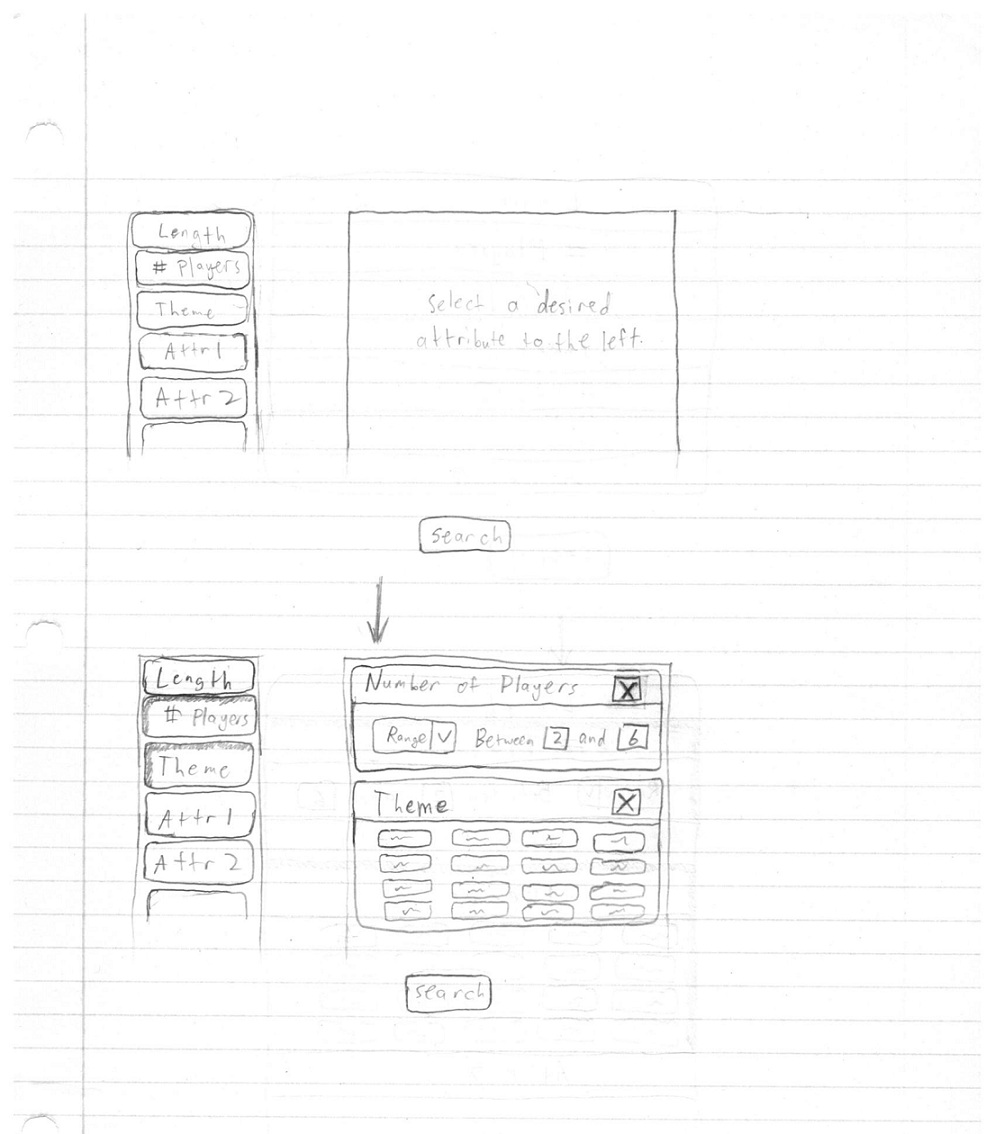 Length
# Players
Theme
Attr 1
Attr 2
Select a desired
attribute to the left.
Search
Length
# Players
Theme
Attr 1
Attr 2
Number of Players X
Range Between 2 and 6
Theme X
Search